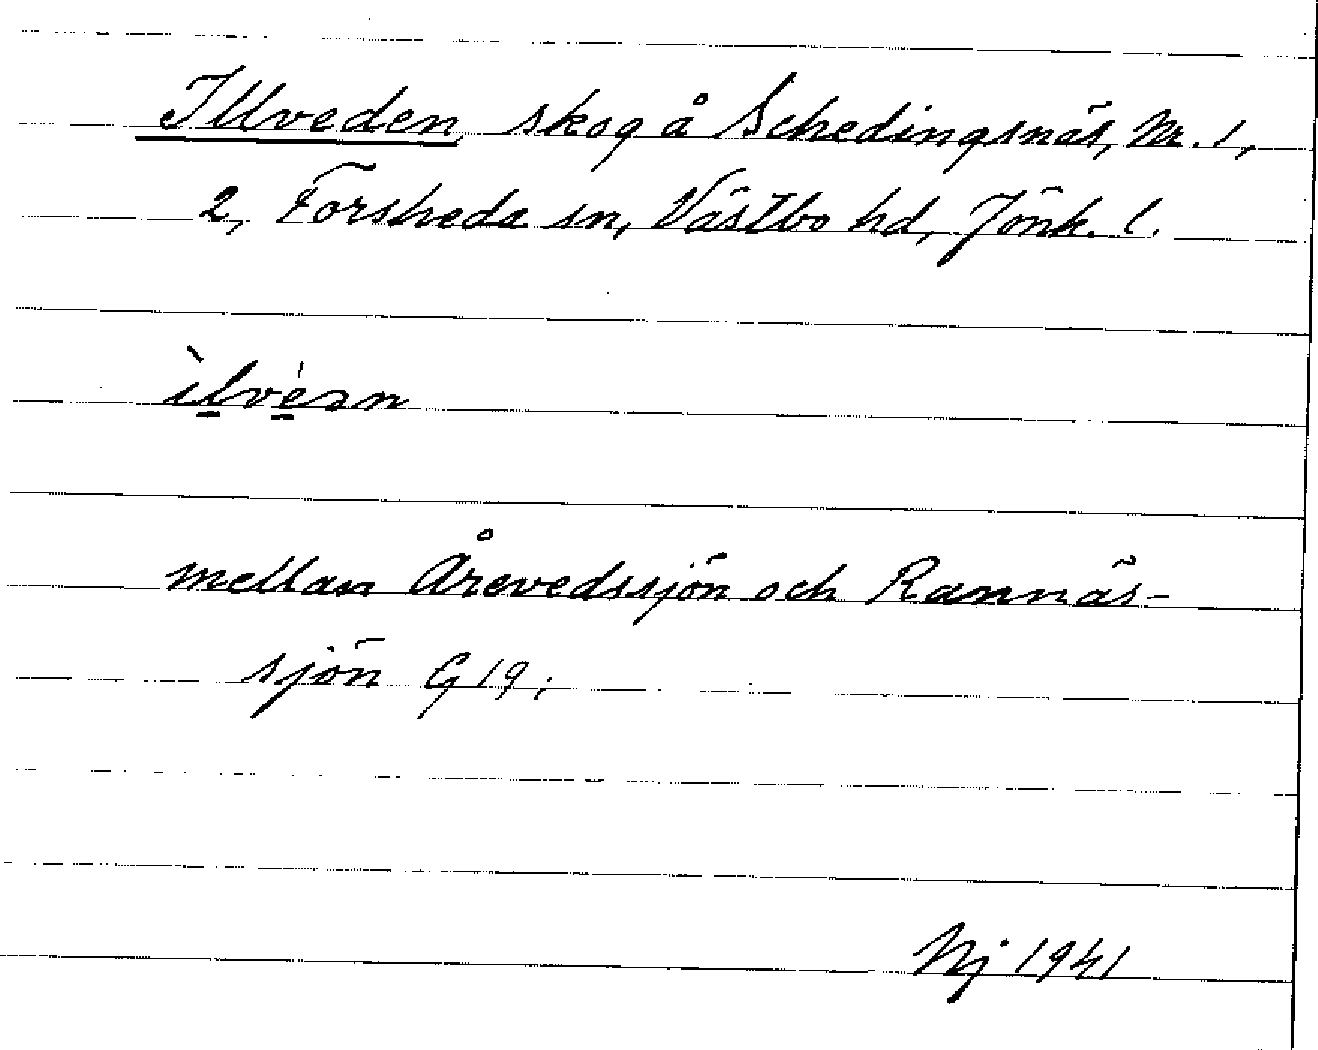 Illveden, skog å Schedingsnäs, Nr. 1,
2, Forsheda sn, Västbo hd, Jönk. l.
ìlvésn
mellan Årevedssjön och Rannäs-
sjön G 19;
Nj 1941